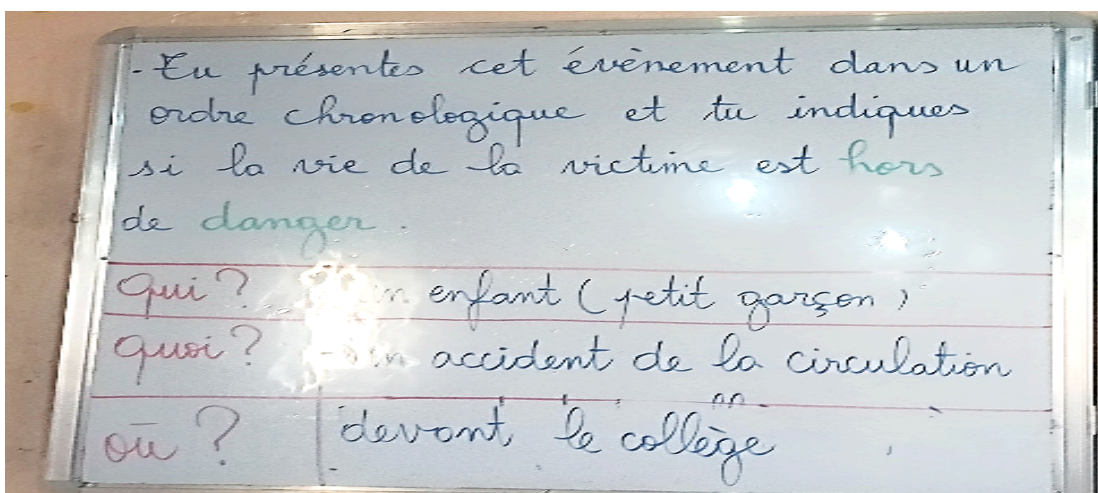 - Tu présentes cet évènement dans un
ordre chronologique et tu indiques
si la vie de la victime est hors
de danger.
Qui ? enfant (petit garçon)
quoi ? accident de la circulation
où ? devant le collège